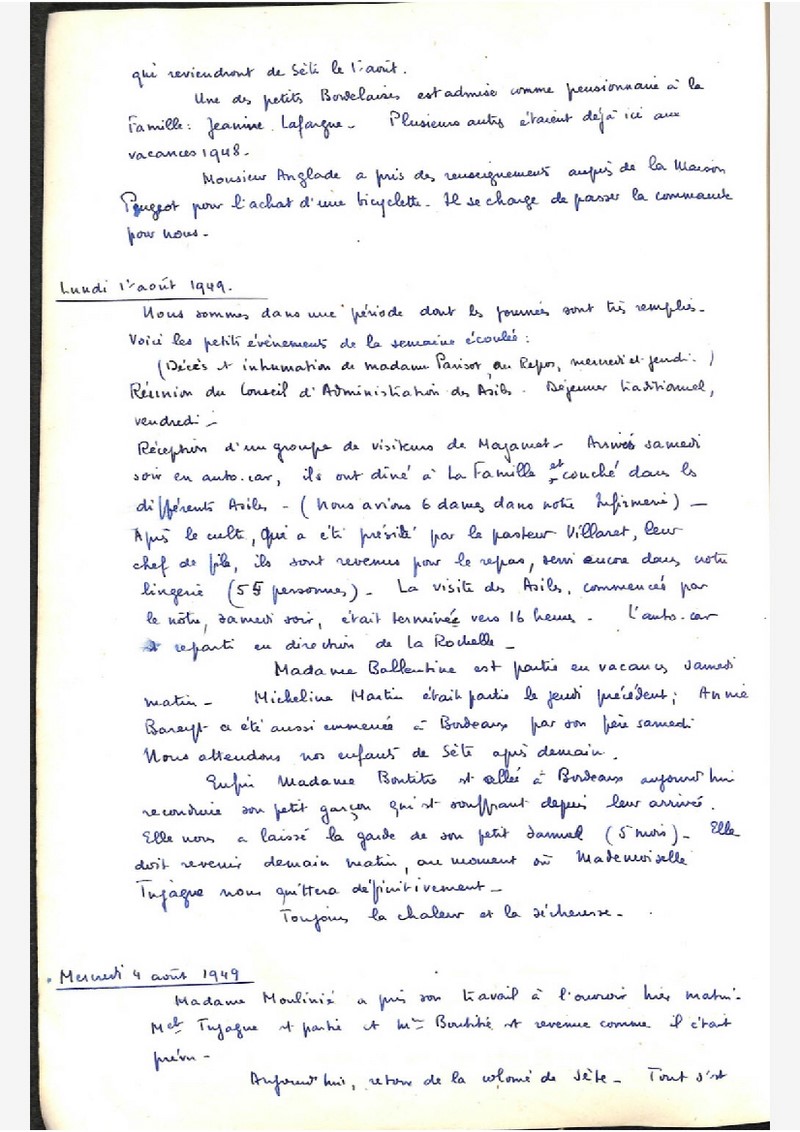 qui reviendront de Sète le 1er août.
Une des petits Bordelaises est admise comme pensionnaire à la
Famille : Jeanine Lafargue - Plusieurs autres étaient déjà ici aux
vacances 1948 -
Monsieur Anglade a pris des renseignements auprès de la Maison
Peugeot pour l'achat d'une bicyclette - Il se charge de passer la commande
pour nous -
Lundi 1er août 1949.
Nous sommes dans une période dont les journées sont très remplies -
Voici les petits événements de la semaine écoulée :
(Décès et inhumation de madame Parisot, au Repos, mercredi et jeudi. )
Réunion du Conseil d'Administration des Asiles. Déjeuner traditionnel,
vendredi -
Réception d'un groupe de visiteurs de Mazamet - Arrivés samedi
soir en auto-car, ils ont dîné à La Famille et couché dans les
différents Asiles - (Nous avions 6 dames dans notre Infirmerie) -
Après le culte, qui a été présidé par le pasteur Villaret, leur
chef de file, ils sont revenus pour le repas, servi encore dans notre
lingerie (55 personnes) - La visite des Asiles, commencée par
le nôtre, samedi soir, était terminée vers 16 heures - L'auto-car
est reparti en direction de La Rochelle -
Madame Ballentine est partie en vacances samedi
matin - Micheline Martin était partie le jeudi précédent ; Annie
a été aussi emmenée à Bordeaux par son père samedi
Nous attendons nos enfants de Sète après demain.
Enfin Madame Boutitié est allée à Bordeaux aujourd'hui
reconduire son petit garçon qui est souffrant depuis leur arrivée.
Elle nous a laissé la garde de son petit Samuel (5 mois) - Elle
doit revenir demain matin, au moment où Mademoiselle
Tujague nous quittera définitivement -
Toujours la chaleur et la sécheresse -
Mercredi 4 août 1949
Madame Moulinié a pris son travail à l'ouvroir hier matin -
Melle Tujague est partie et Mme Boutitié est revenue comme il était
prévu -
Aujourd'hui, retour de la colonie de Sète - Tout s'est